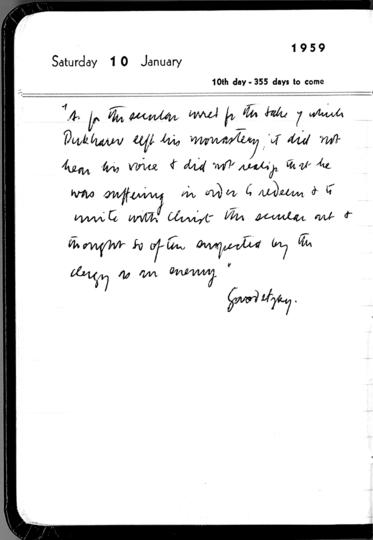 1959
Saturday 10 January
10th day - 355 days to come
"As for the secular world for the sake of which
Bukharev left his monastery, it did not
hear his voice & did not realize that he
was suffering in order to redeem & to
unite with Christ the secular art &
thought so often suspected by the
clergy as an enemy"
Gorodetzky.